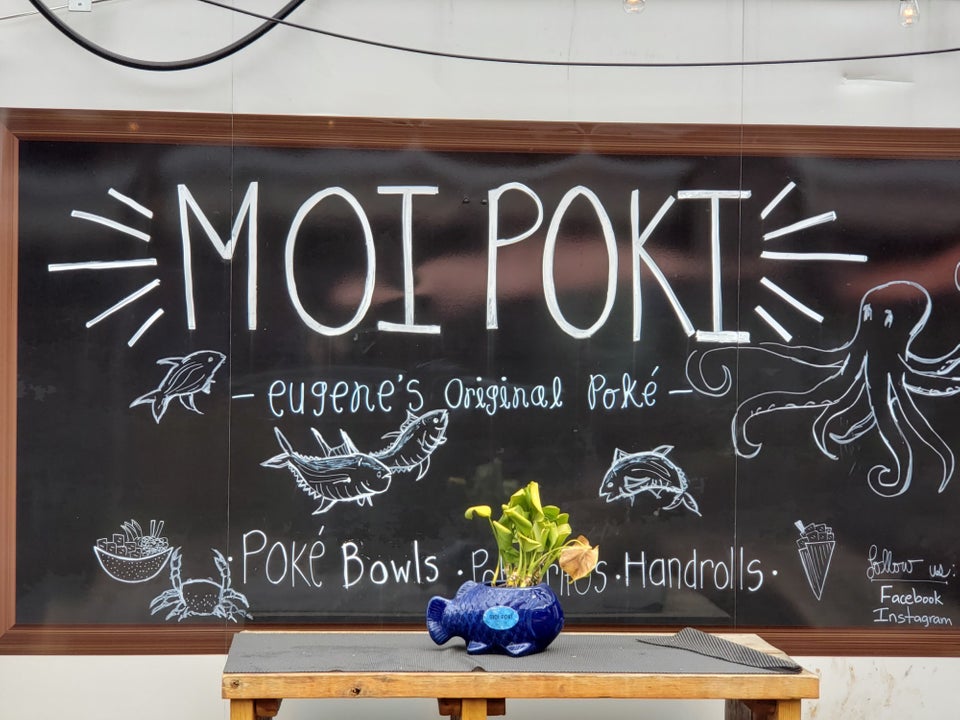 MOI POKI
- eugene's Original Poké -
· Poké Bowls · · Handrolls ·
follow us:
Facebook
Instagram
MOI POKI